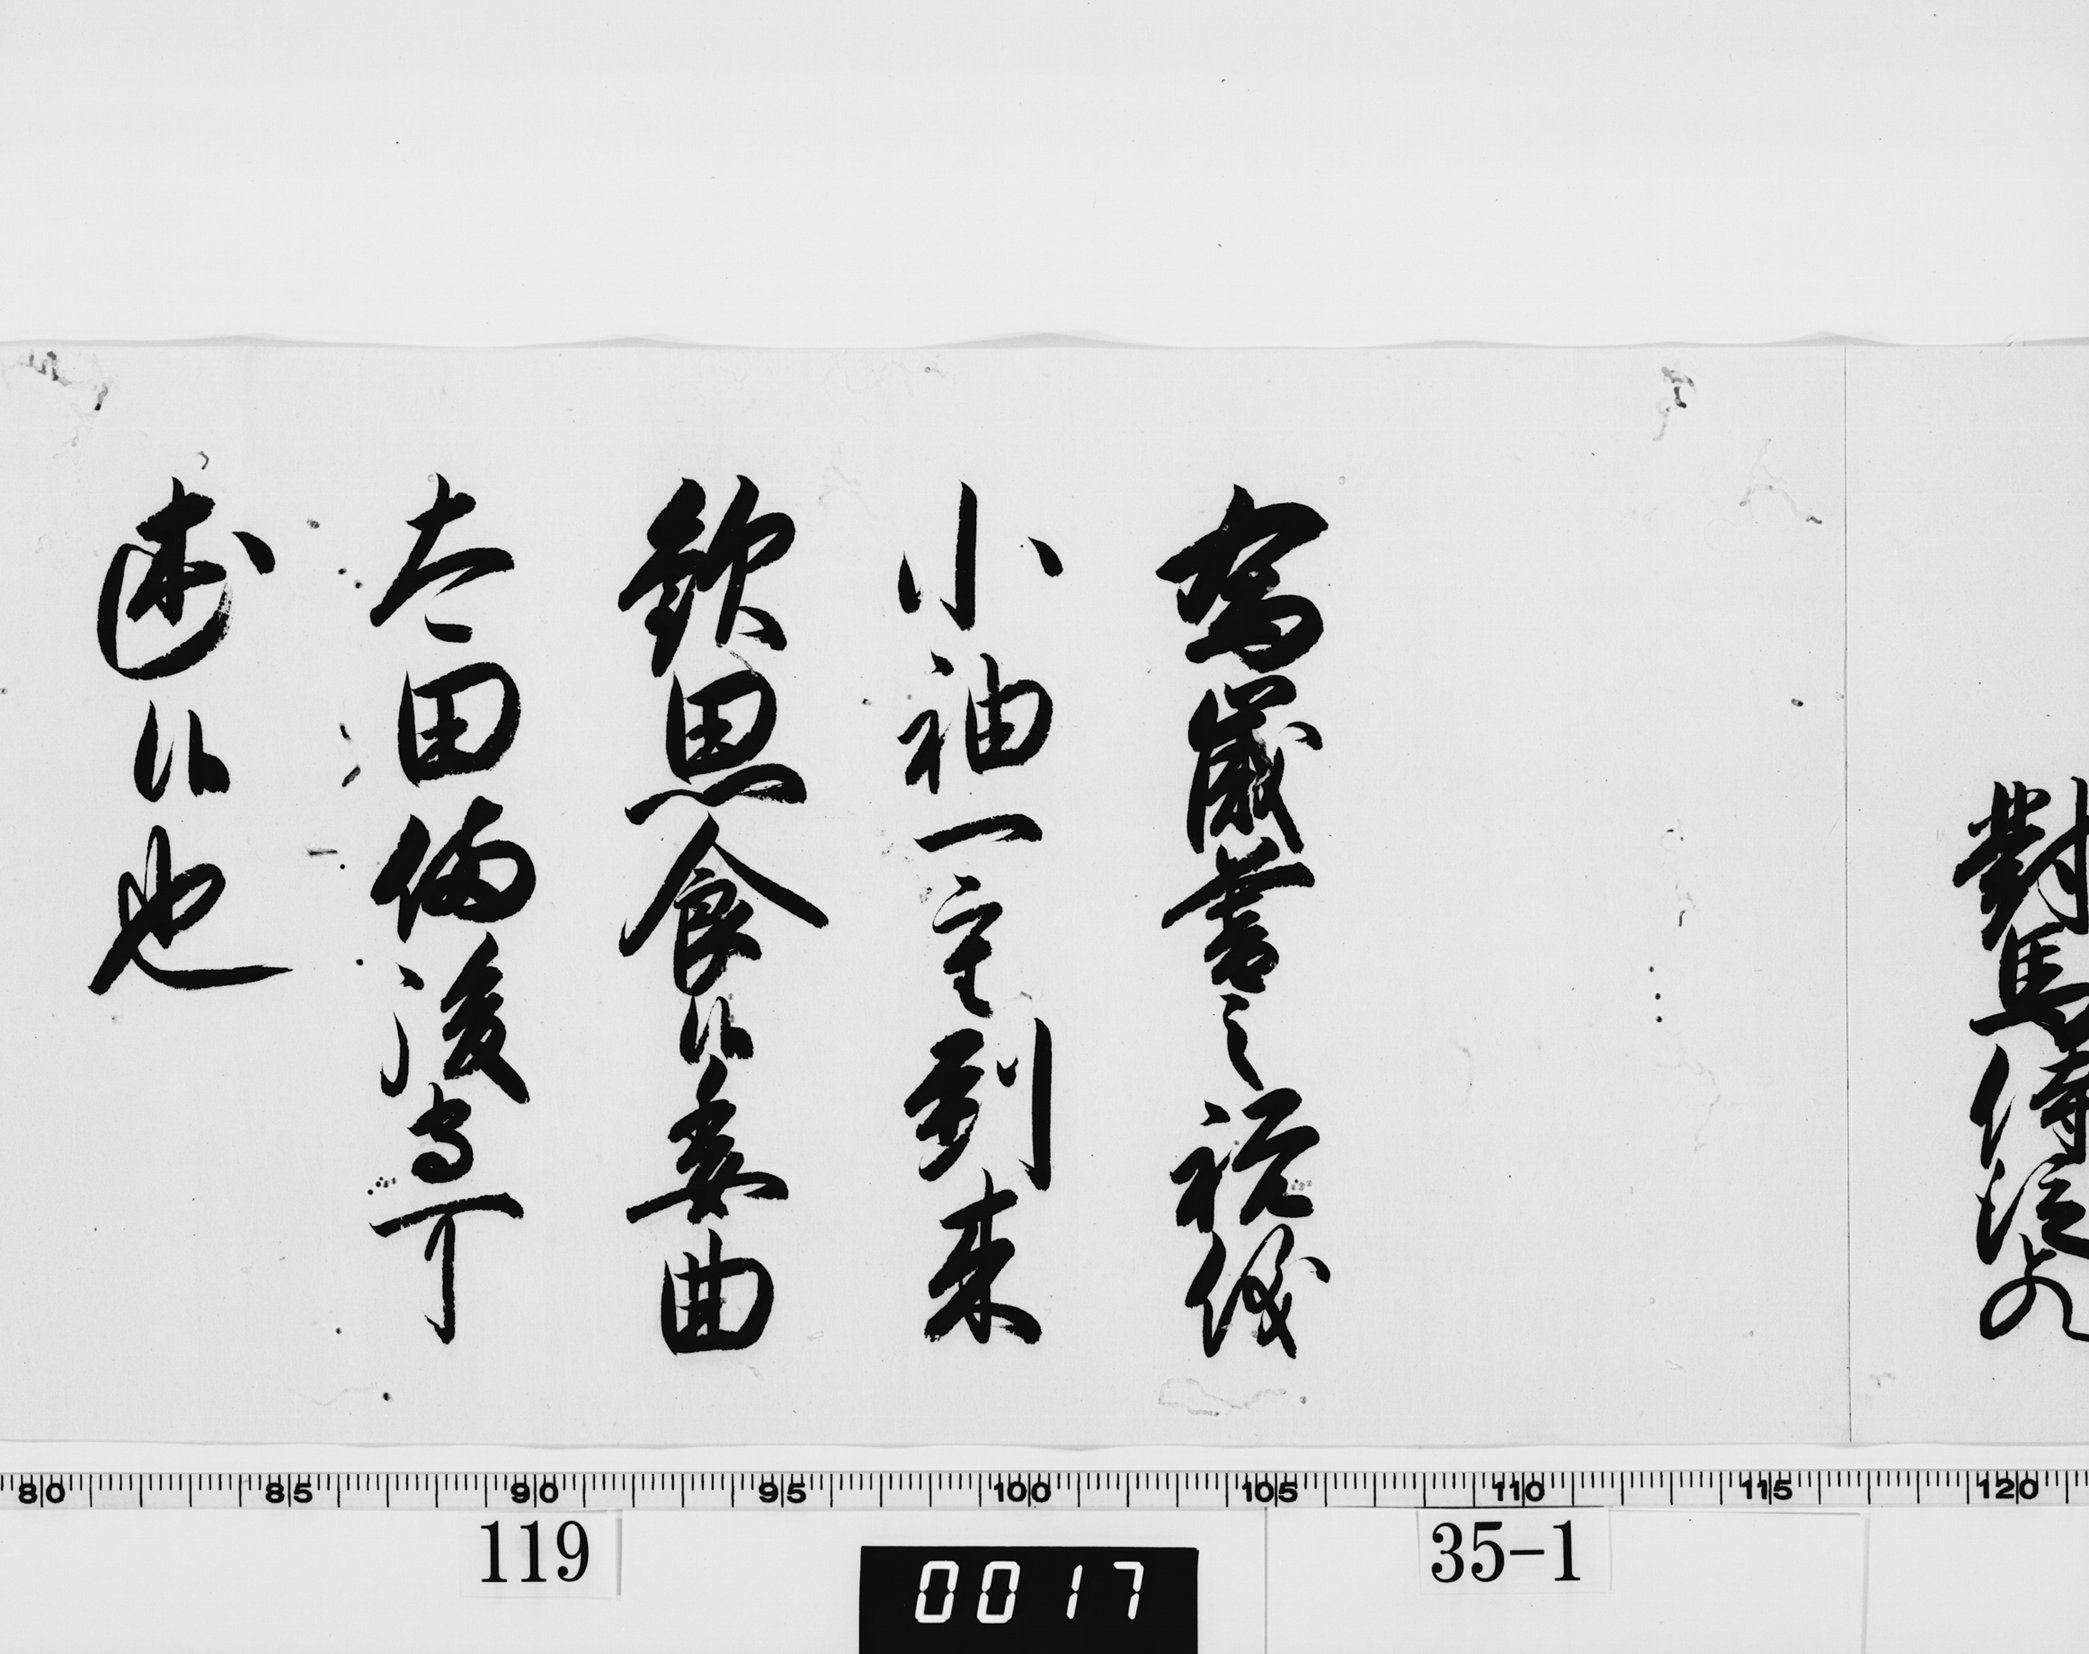 對馬侍従との
為歳暮之祝儀
小袖一重到来
欽思食候委曲
太田備後守可
述候也
80 85 90 95 100 105 110 115 120
119
0017
35-1